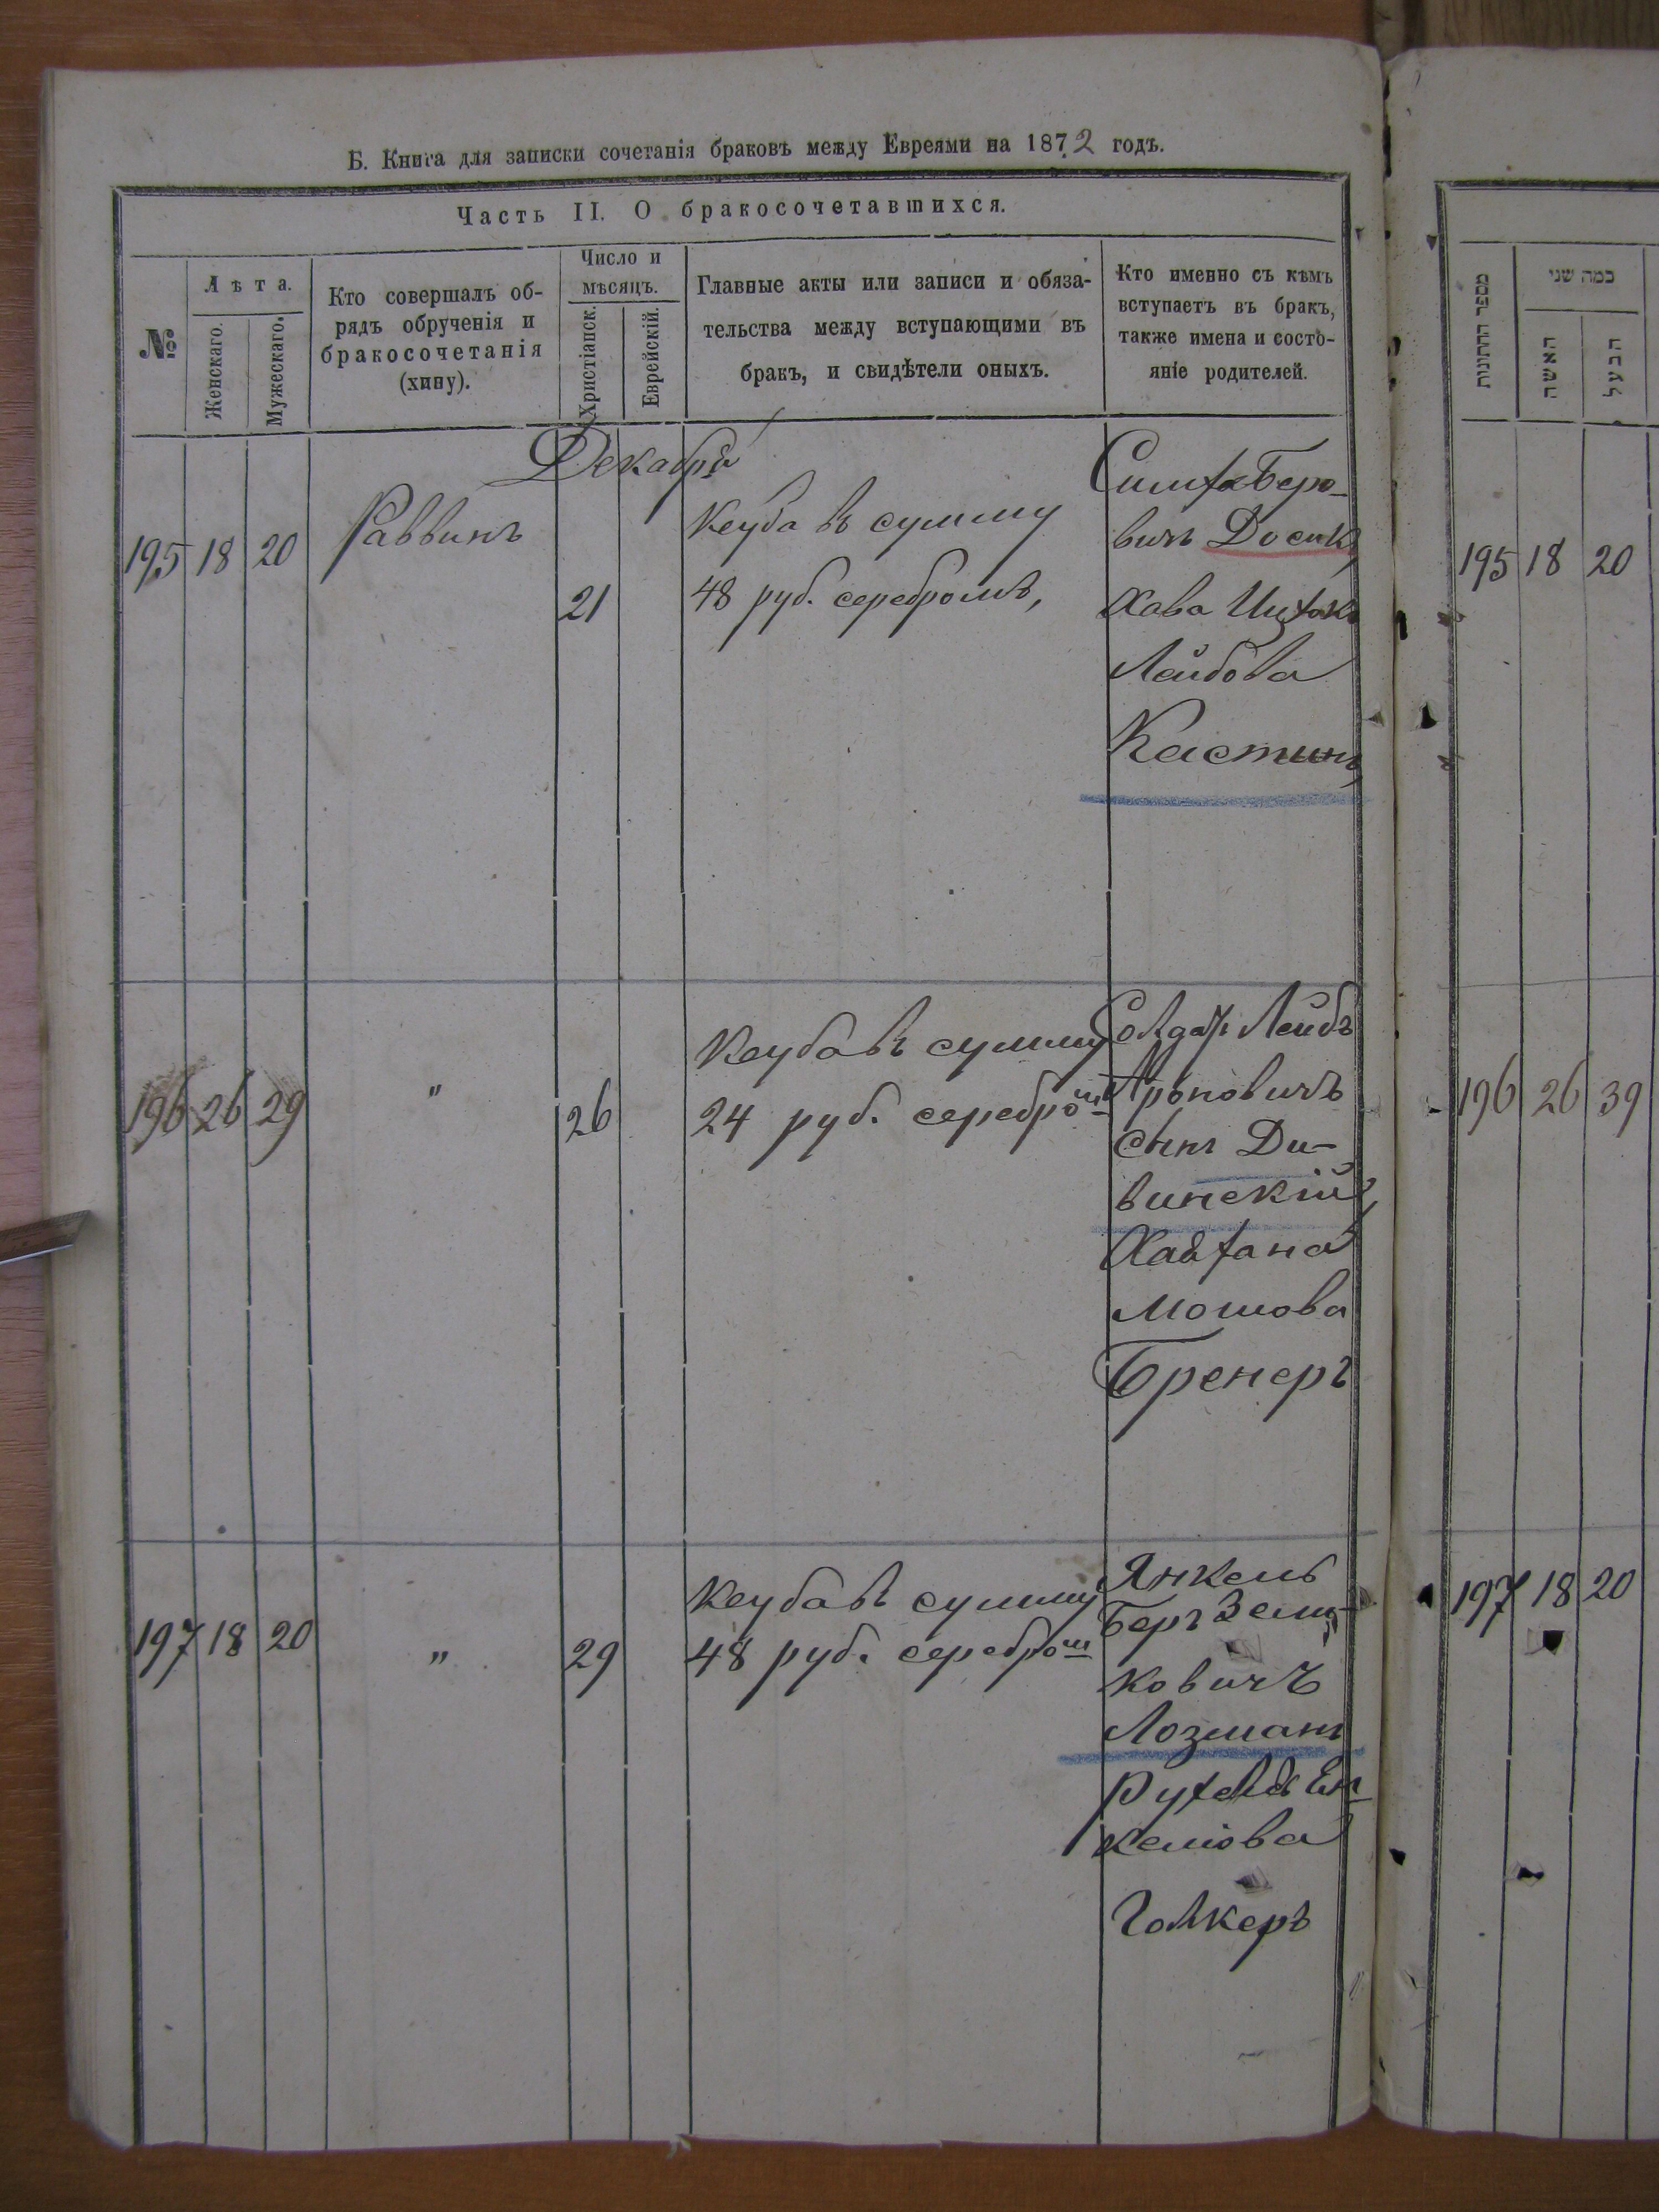 Б. Книга для записки сочетанія браковъ между Евреями на 1872 годъ.
Часть II. О бракосочетавшихся.
№
Лѣта.
Женскаго.
Мужескаго.
Кто совершалъ об-
рядъ обрученія и
бракосочетанія
(хипу).
Число и
мѣсяцъ.
Христіанск.
Еврейскій.
Главные акты или записи и обяза-
тельства между вступающими въ
бракъ, и свидѣтели оныхъ.
Кто именно съ кѣмъ
вступаетъ въ бракъ,
также имена и состо-
яніе родителей.
Декабря
195 18 20 Раввинъ 21
Кеуба въ сумму
48 руб. серебромъ,
Симха Беро-
вичъ Досик
Хава Ицхокъ
Лейбова
Кастинъ
196 26 29 " 26
Кеуба въ сумму
24 руб. серебром
Солдат Лейбъ
Ароновичъ
сынъ Ди-
винскій
Мошова
Бренеръ
197 18 20 " 29
Кеуба въ сумму
48 руб. серебром
Янкель
Беръ Зели-
ковичъ
Лозманъ
Рухель Ен-
келіова
Голкеръ
מספר החתונות
כמה שני
האשה
הבעל
195 18 20
196 26 39
197 18 20